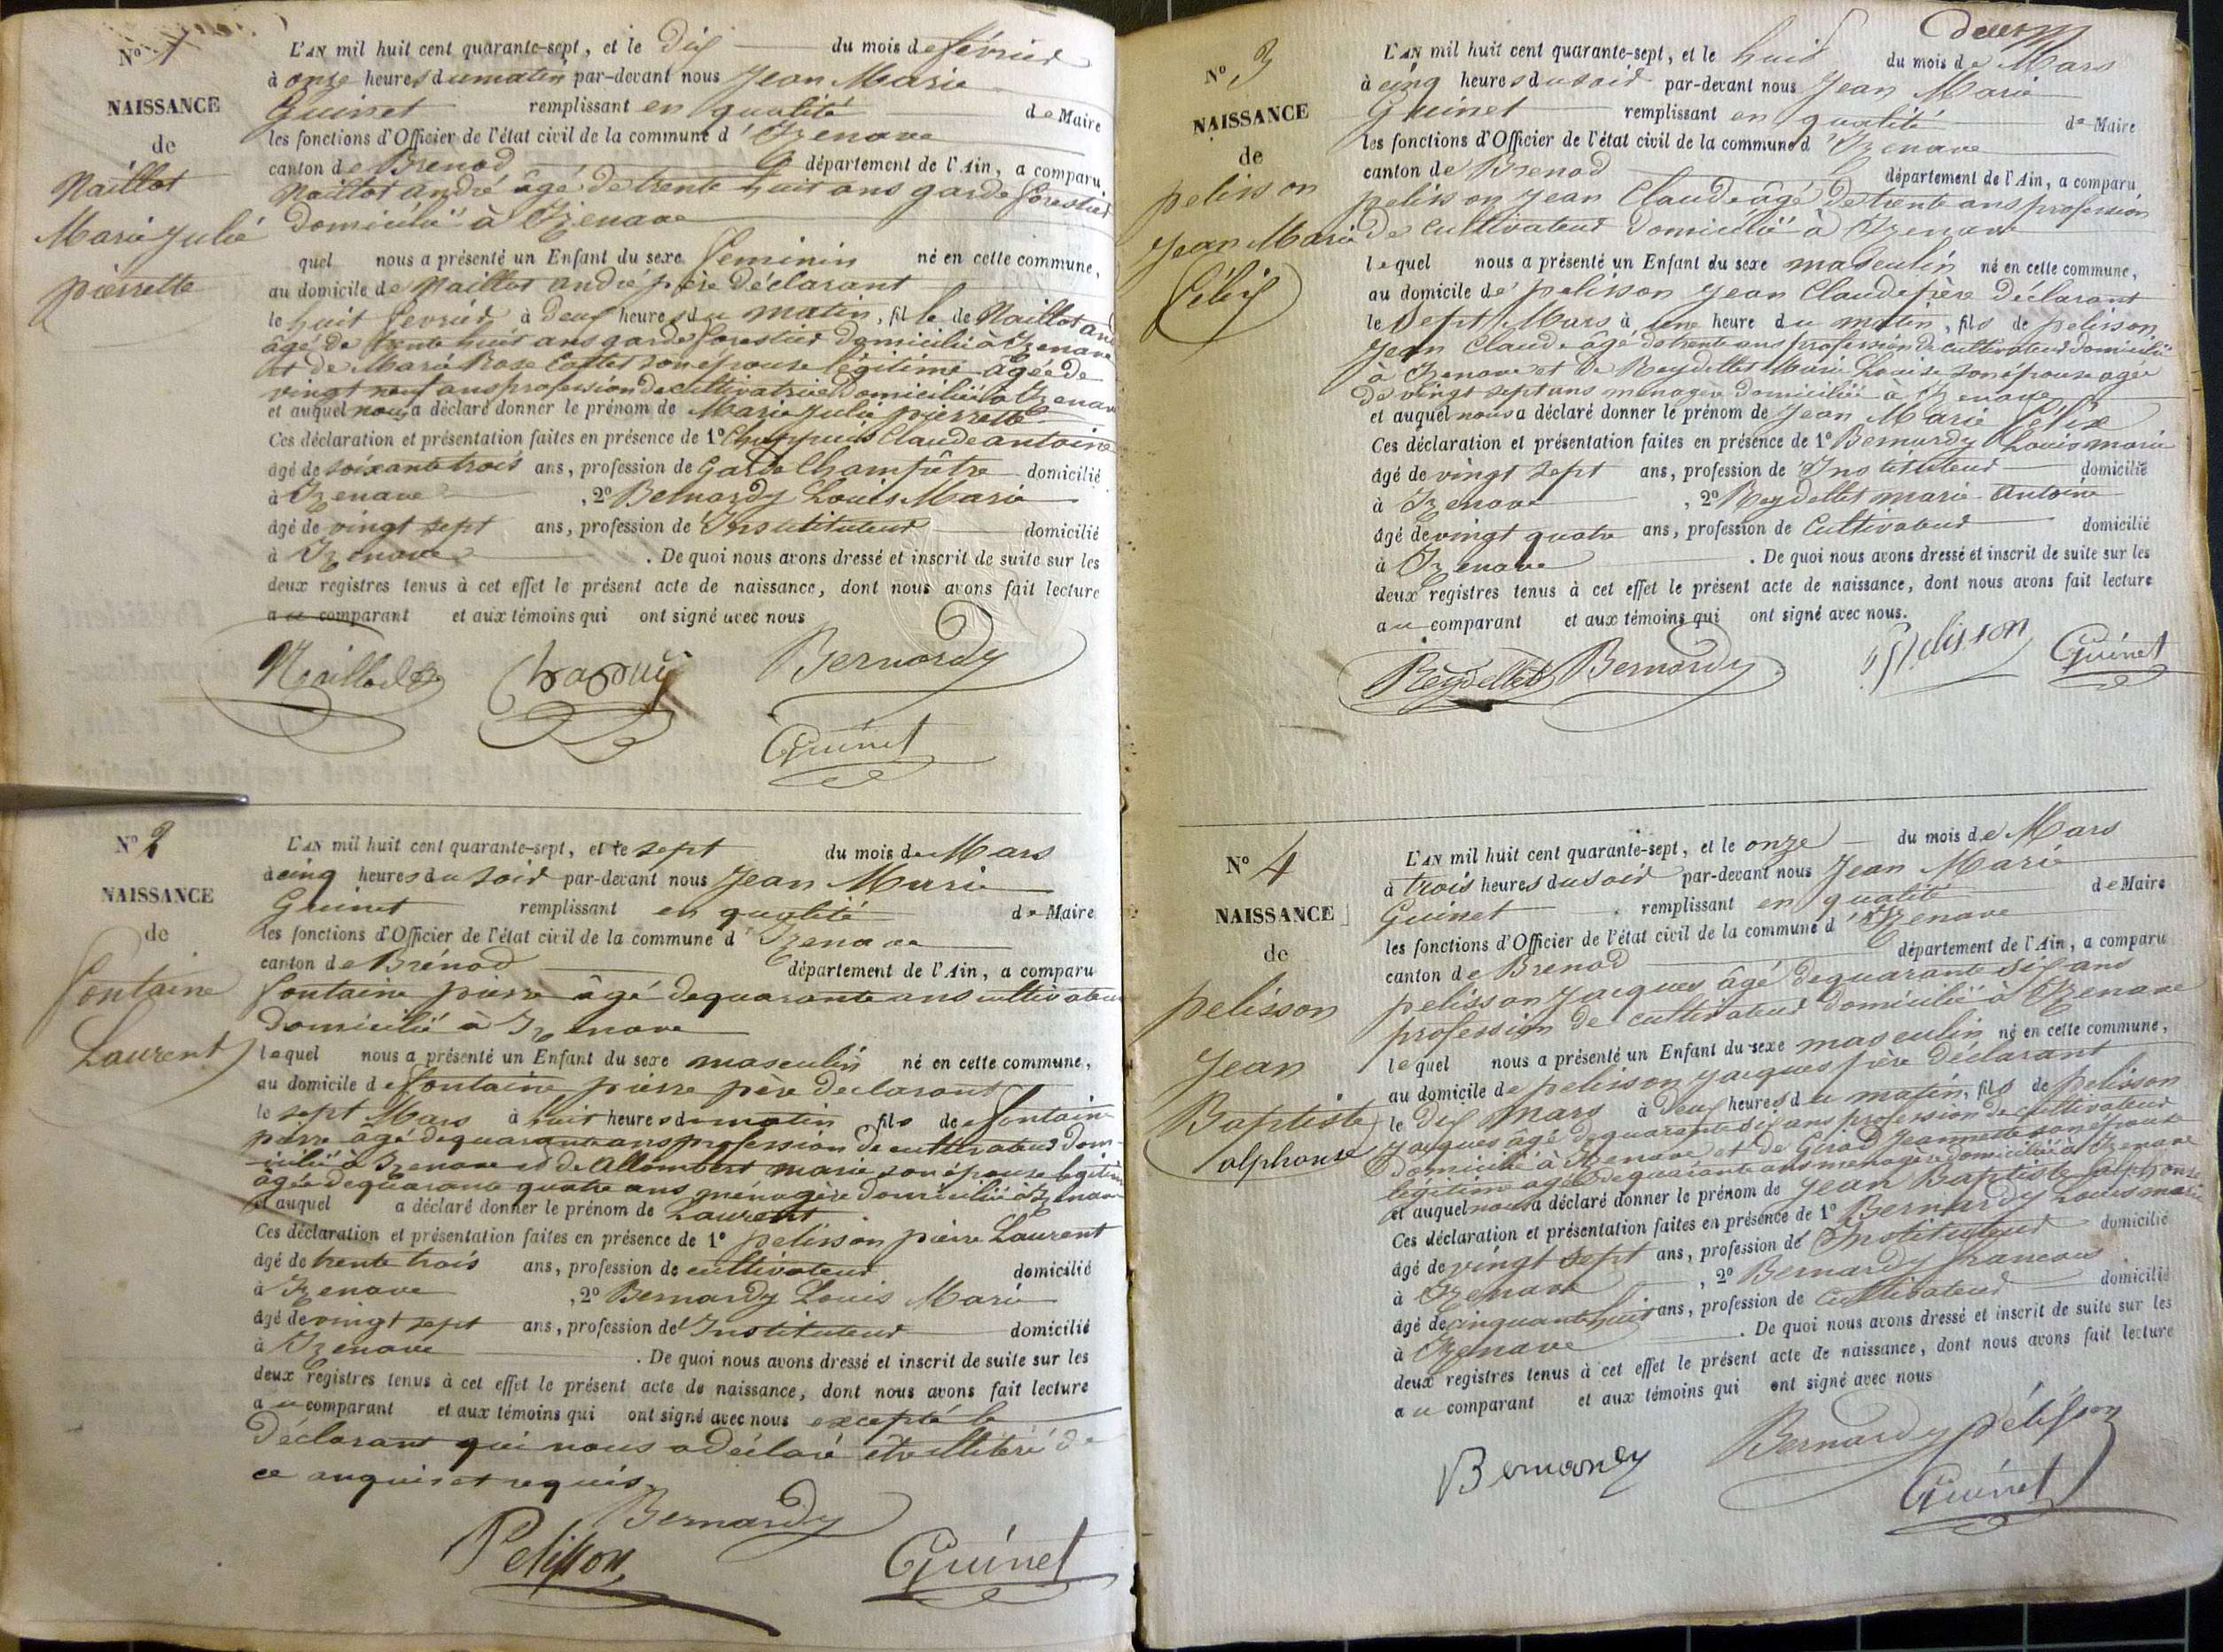 N° 1
NAISSANCE
de
Maillot
Marie Julie
pierrette
L'AN mil huit cent quarante-sept, et le dix du mois de février
à onze heures du matin par-devant nous Jean Marie
Guinet remplissant en qualité de Maire
les fonctions d'Officier de l'état civil de la commune d'Izenave
canton de Brenod département de l'Ain, a comparu
Maillot andré âgé de trente huit ans garde forestier
domicilié à Izenave
quel nous a présenté un Enfant du sexe feminin né en cette commune,
au domicile de Maillot andré père déclarant
le huit fevrier à deux heures du matin, fille de Maillot and
âgé de trente huit ans garde forestier domicilié à Izenave
et de Marie Rose son épouse légitime âgée de
vingt neuf ans profession de cultivatrice domiciliée à Izenave
et auquel nous a déclaré donner le prénom de Marie Julie pierrette
Ces déclaration et présentation faites en présence de 1° Chappuis Claude antoine
âgé de soixante trois ans, profession de Garde Champêtre domicilié
à Izenave , 2° Bernardy Louis Marie
âgé de vingt sept ans, profession de Instituteur domicilié
à Izenave . De quoi nous avons dressé et inscrit de suite sur les
deux registres tenus à cet effet le présent acte de naissance, dont nous avons fait lecture
au comparant et aux témoins qui ont signé avec nous
Bernardy
Guinet
N° 2
NAISSANCE
de
fontaine
Laurent
L'AN mil huit cent quarante-sept, et le sept du mois de Mars
à cinq heures du soir par-devant nous Jean Marie
Guinet remplissant en qualité de Maire
les fonctions d'Officier de l'état civil de la commune d'Izenave
canton de Brénod département de l'Ain, a comparu
fontaine pierre âgé de quarante ans cultivateur
domicilié à Izenave
lequel nous a présenté un Enfant du sexe masculin né en cette commune,
au domicile de fontaine pierre père déclarant
le sept Mars à huit heures du matin fils de fontaine
pierre âgé de quarante ans profession de cultivateur dom-
icilié à Izenave et de Allombert marie son épouse légitime
âgée de quarante quatre ans ménagère domiciliée à Izenave
et auquel a déclaré donner le prénom de Laurent
Ces déclaration et présentation faites en présence de 1° pelisson pierre Laurent
âgé de trente trois ans, profession de cultivateur domicilié
à Izenave , 2° Bernardy Louis Marie
âgé de vingt sept ans, profession de Instituteur domicilié
à Izenave . De quoi nous avons dressé et inscrit de suite sur les
deux registres tenus à cet effet le présent acte de naissance, dont nous avons fait lecture
au comparant et aux témoins qui ont signé avec nous excepté le
déclarant qui nous a déclaré être illitéré de
ce enquis et requis
Bernardy
Pelisson Guinet
N° 3
NAISSANCE
de
pelisson
Jean Marie
félix
L'AN mil huit cent quarante-sept, et le huit du mois de Mars
à cinq heures du soir par-devant nous Jean Marie
Guinet remplissant en qualité de Maire
les fonctions d'Officier de l'état civil de la commune d'Izenave
canton de Brenod département de l'Ain, a comparu
pelisson Jean Claude âgé de trente ans profession
de cultivateur domicilié à Izenave
lequel nous a présenté un Enfant du sexe masculin né en cette commune,
au domicile de pelisson Jean Claude père déclarant
le sept Mars à une heure du matin, fils de pelisson
Jean Claude âgé de trente ans profession de cultivateur domicilié
à Izenave et de Reydellet Marie Louise son épouse agée
de vingt sept ans ménagère domiciliée à Izenave
et auquel nous a déclaré donner le prénom de Jean Marie félix
Ces déclaration et présentation faites en présence de 1° Bernardy Louis marie
âgé de vingt sept ans, profession de Instituteur domicilié
à Izenave , 2° Reydellet marie Antoine
âgé de vingt quatre ans, profession de Cultivateur domicilié
à Izenave . De quoi nous avons dressé et inscrit de suite sur les
deux registres tenus à cet effet le présent acte de naissance, dont nous avons fait lecture
au comparant et aux témoins qui ont signé avec nous.
Reydellet Bernardy Pelisson Guinet
N° 4
NAISSANCE
de
pelisson
Jean
Baptiste
alphonse
L'AN mil huit cent quarante-sept, et le onze du mois de Mars
à trois heures du soir par-devant nous Jean Marie
Guinet remplissant en qualité de Maire
les fonctions d'Officier de l'état civil de la commune d'Izenave
canton de Brenod département de l'Ain, a comparu
pelisson Jacques âgé de quarante six ans
profession de cultivateur domicilié à Izenave
lequel nous a présenté un Enfant du sexe masculin né en cette commune,
au domicile de pelisson Jacques père déclarant
le dix mars à deux heures du matin, fils de pelisson
Jacques âgé de quarante six ans profession de cultivateur
domicilié à Izenave et de Jeannette son épouse
légitime agée de quarante ans ménagère domiciliée à Izenave
et auquel nous a déclaré donner le prénom de Jean Baptiste alphonse
Ces déclaration et présentation faites en présence de 1° Bernardy Louis marie
âgé de vingt sept ans, profession de Instituteur domicilié
à Izenave , 2° Bernardy francois
âgé de cinquante huit ans, profession de Cultivateur domicilié
à Izenave . De quoi nous avons dressé et inscrit de suite sur les
deux registres tenus à cet effet le présent acte de naissance, dont nous avons fait lecture
au comparant et aux témoins qui ont signé avec nous
Bernardy Bernardy Pélisson
Guinet